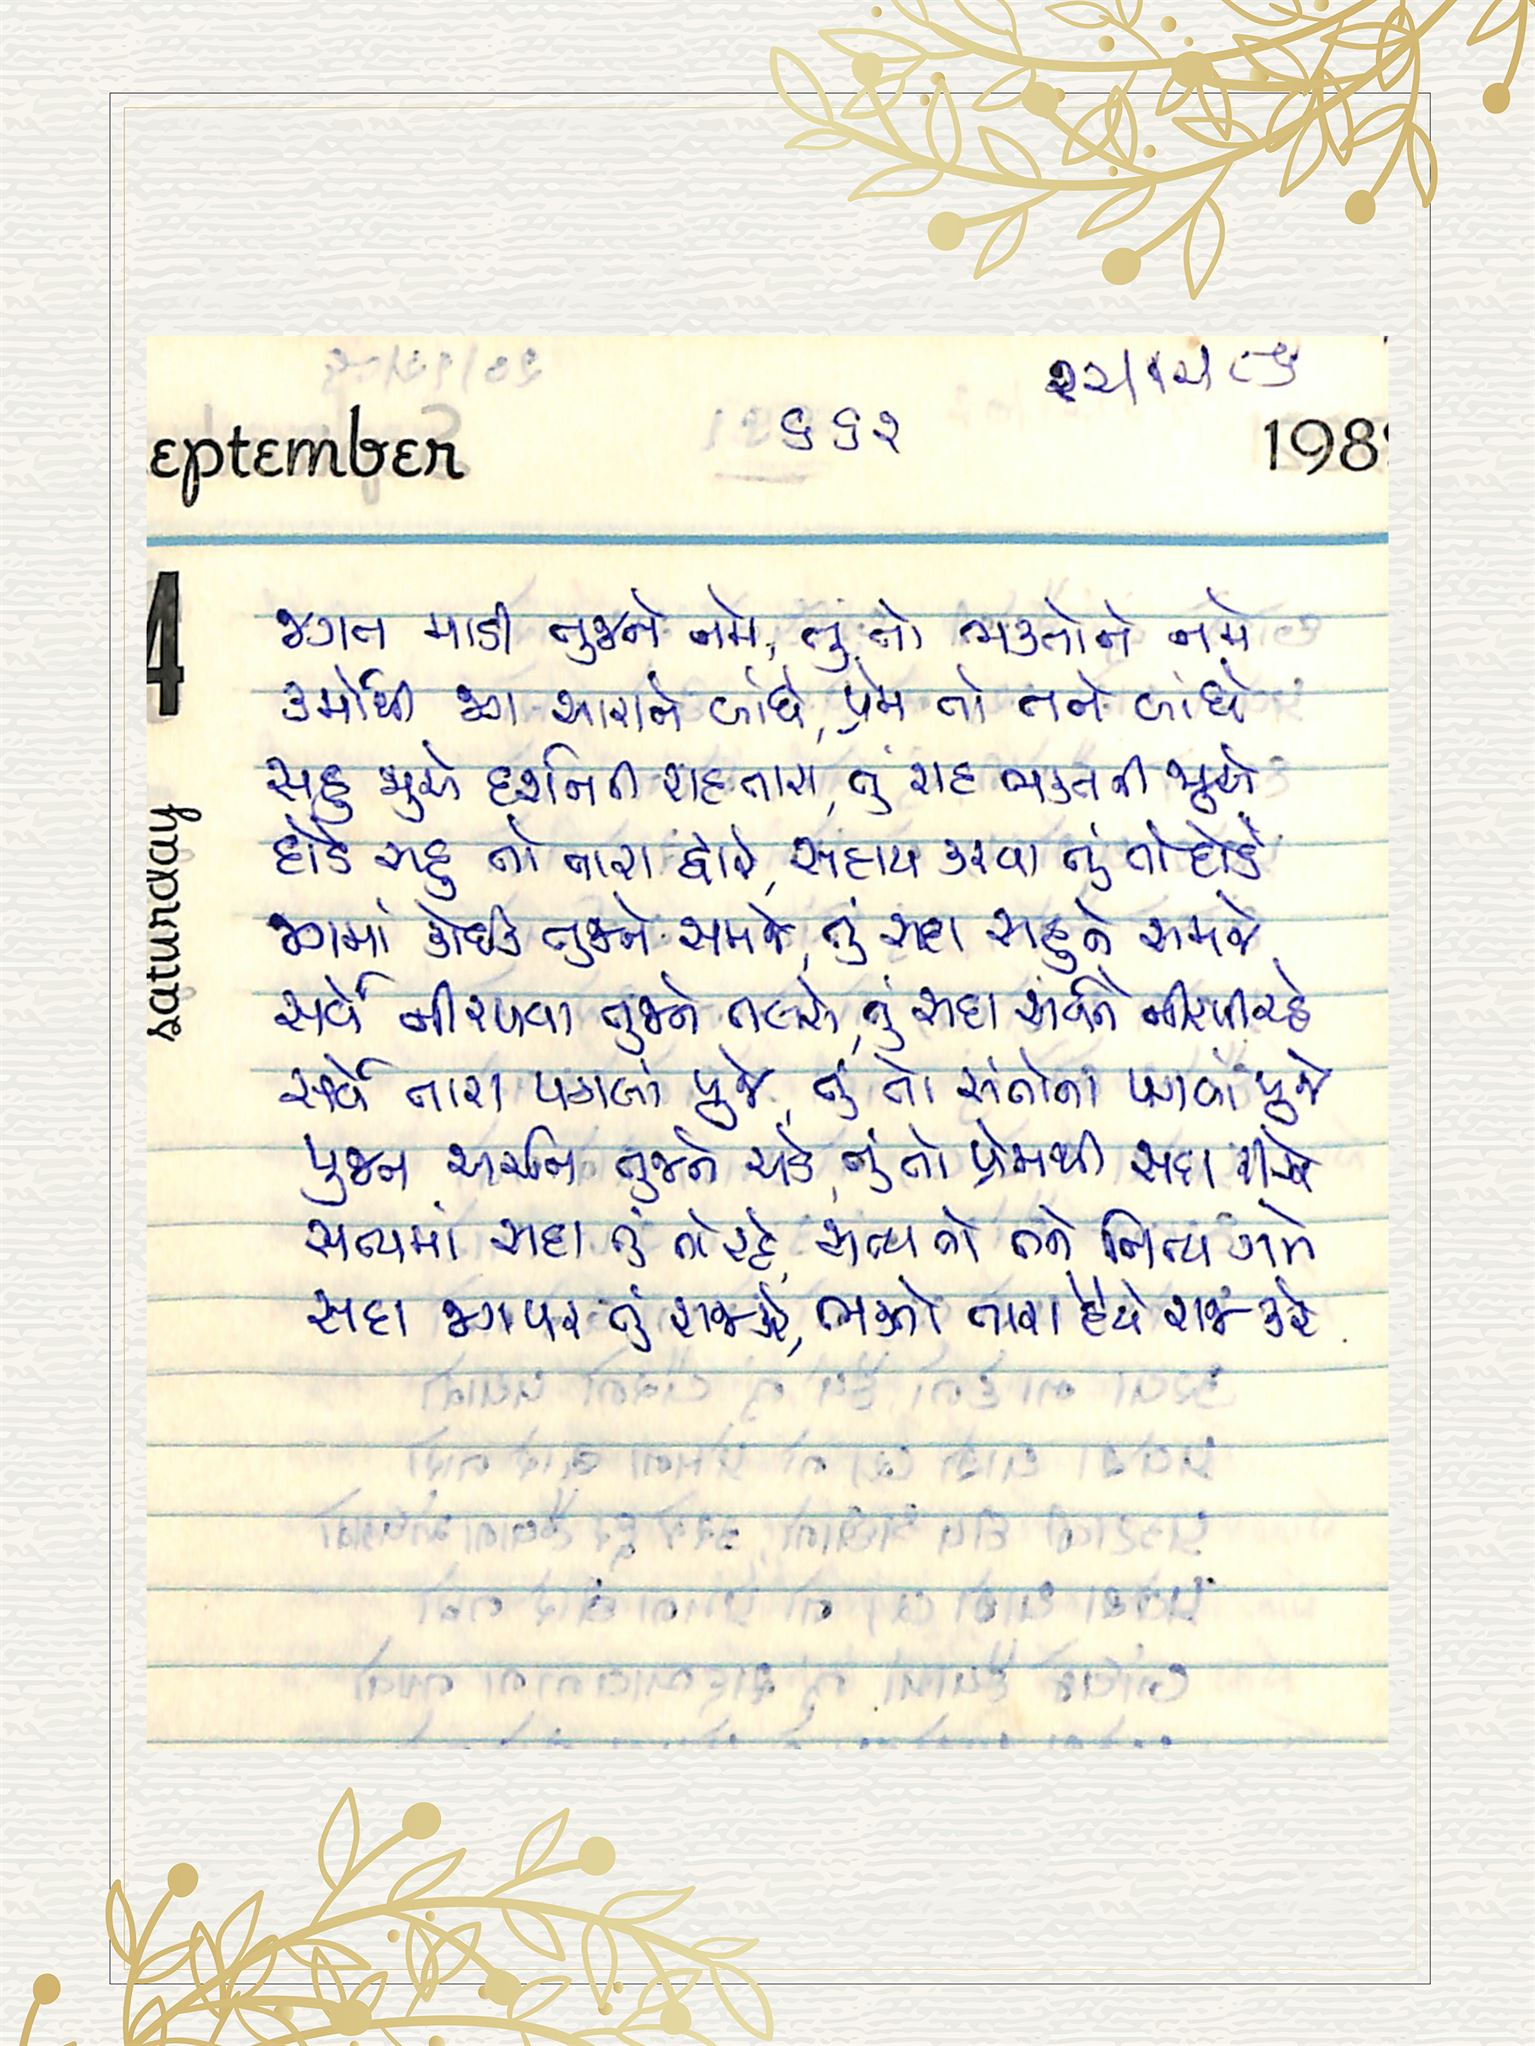 ૨૨/૧૨/૮૬
eptember ૬૬૨ 198
4
saturday
જગત માડી તુજને નમે, તું તો ભક્તોને નમે
કર્મોથી જગ સારાને બાંધે, પ્રેમ તો તને બાંધે
સહુ જુએ દર્શનની રાહ તારા, તું રાહ ભક્તની જુએ
દોડે સહુ તો તારા દ્વારે, સહાય કરવા તું તો દોડે
જગમાં કોઈક તુજને સમજે, તું સદા સહુને સમજે
સર્વે નીરખવા તુજને તલસે, તું સદા સર્વને નીરખી રહે
સર્વે તારા પગલાં પુજે, તું તો સંતોના પગલાં પુજે
પુજન અર્ચન તુજને ચડે, તું તો પ્રેમથી સદા રીઝે
સત્યમાં સદા તું તો રહે, સત્ય તો તને નિત્ય ગમે
સદા જગ પર તું રાજ કરે, ભક્તો તારા હૈયે રાજ કરે